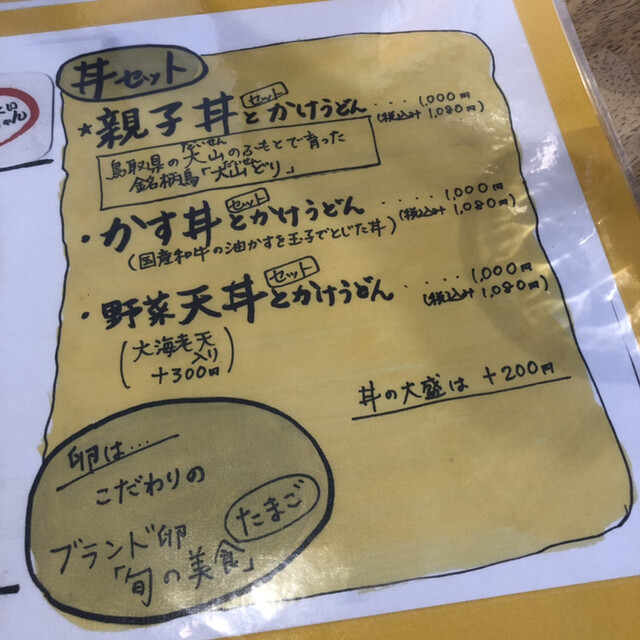 丼セット
★親子丼とかけうどん セット ....1,000円
(税込み 1,080円)
鳥取県の大山のふもとで育った
だいせん
銘柄鳥「大山どり」
だいせん
・かす丼とかけうどん セット ....1,000円
(税込み 1,080円)
(国産和牛の油かすを玉子でとじた丼)
・野菜天丼とかけうどん セット ....1,000円
(税込み 1,080円)
(大海老天
入り
+300円)
丼の大盛は +200円
卵は...
こだわりの
ブランド卵 たまご
「旬の美食」